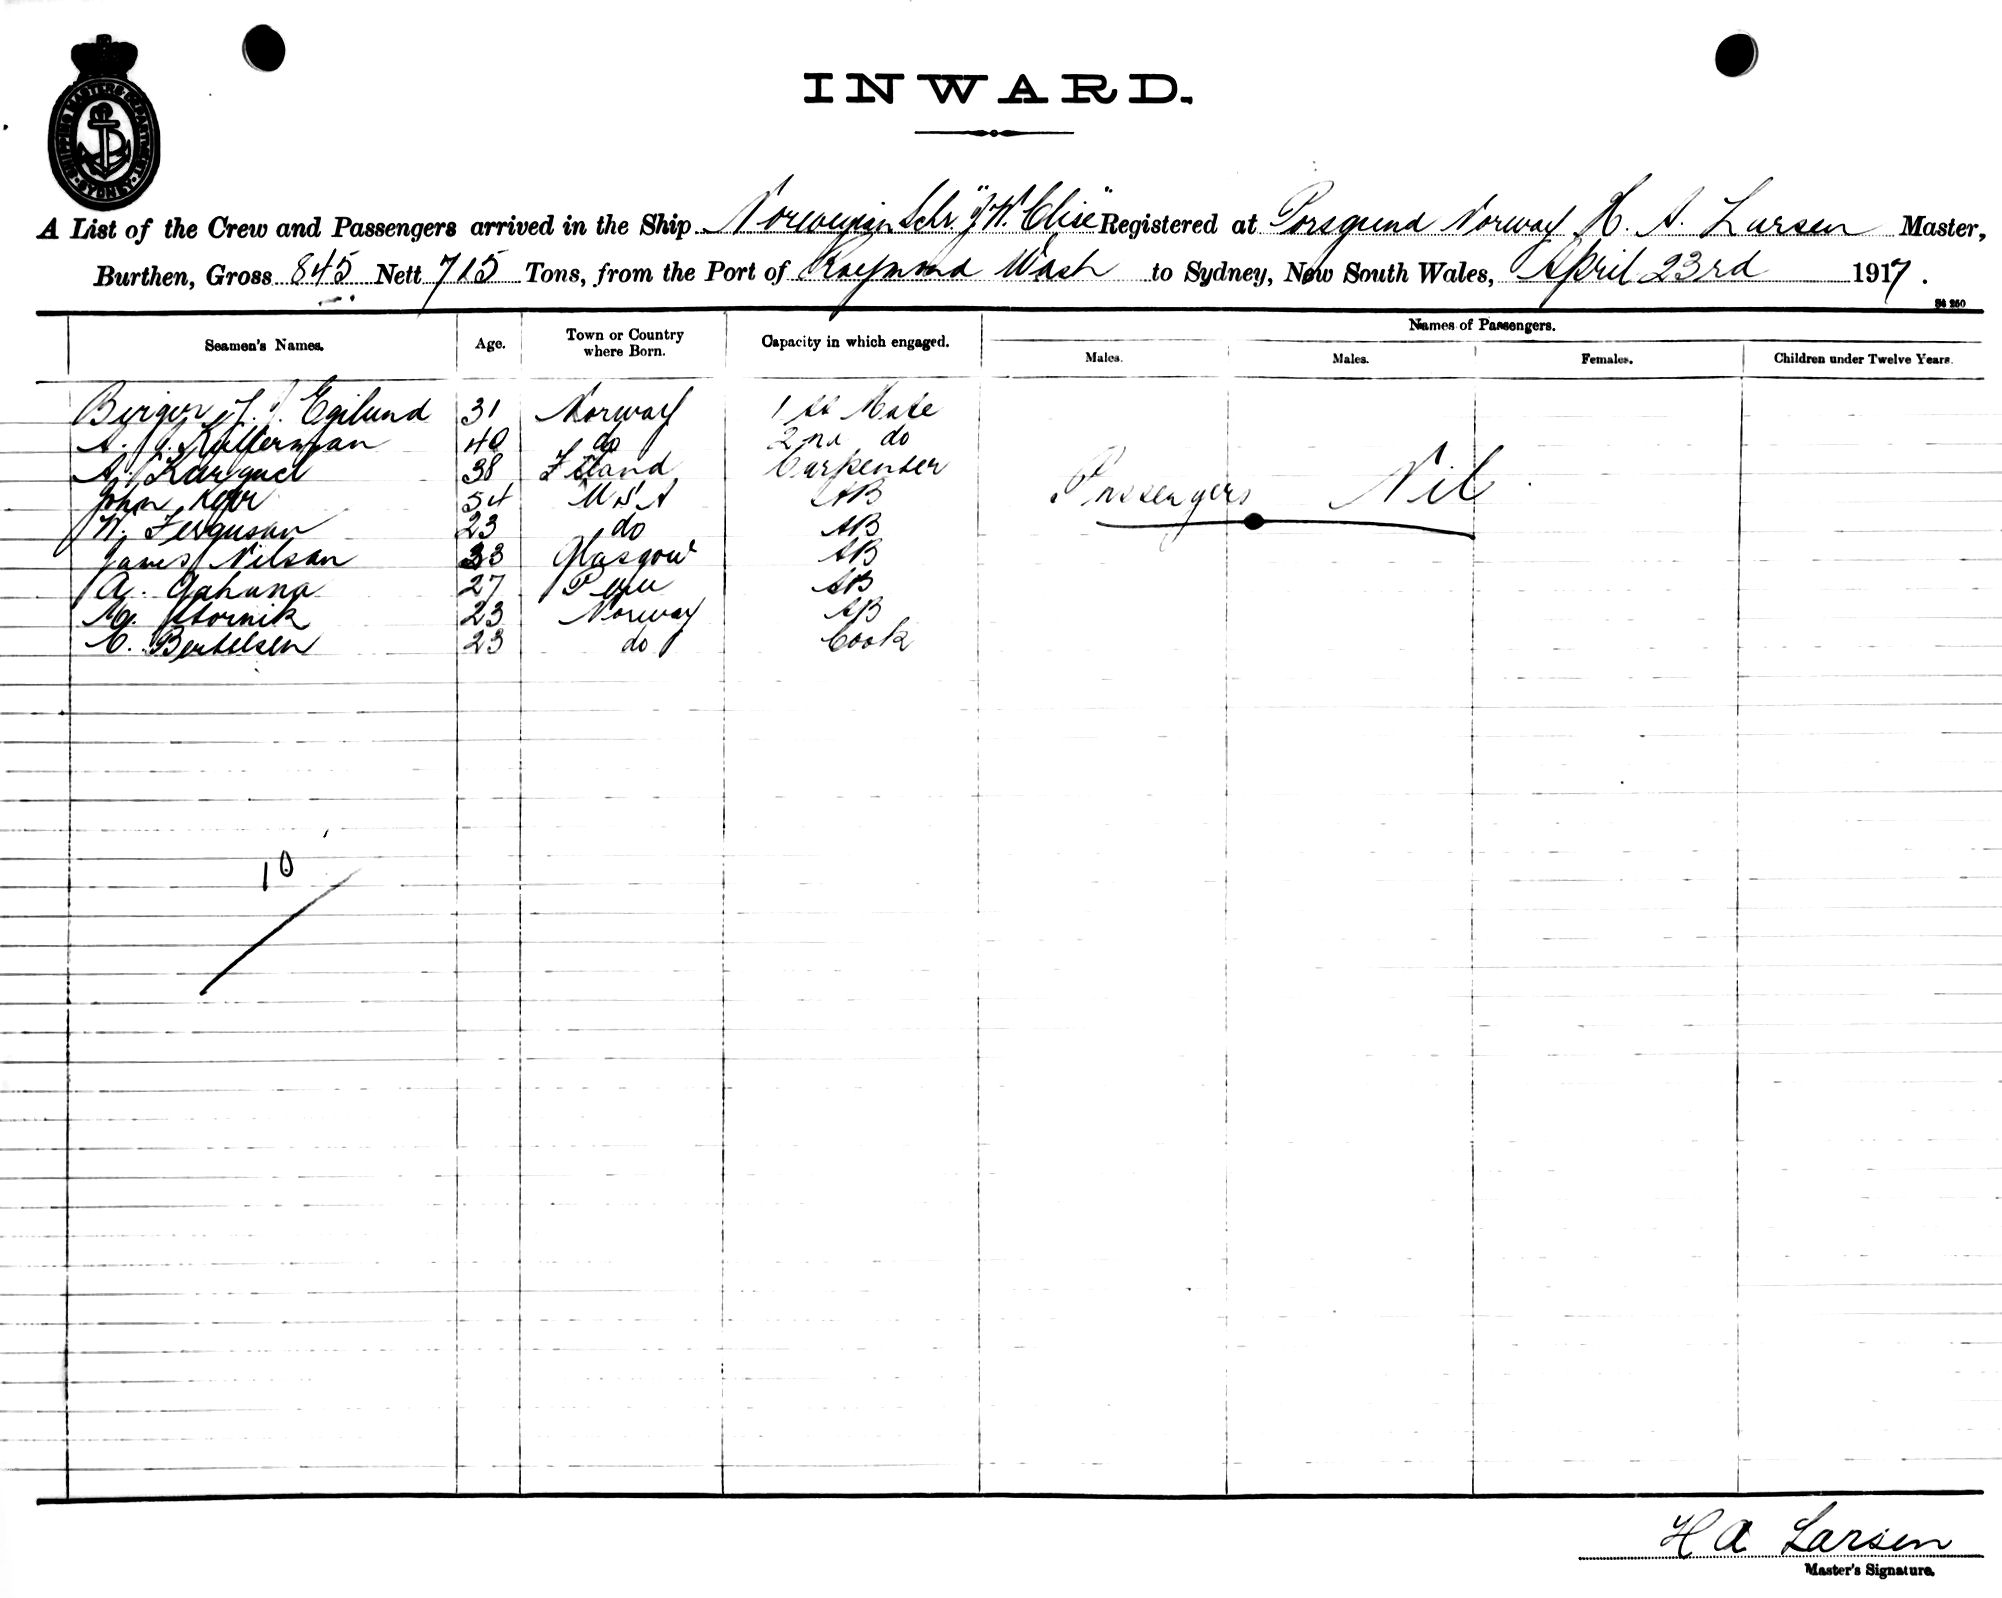 SHIPPING MASTERS DEPARTMENT SYDNEY
INWARD.
A List of the Crew and Passengers arrived in the Ship Norwegian Schr. "J. W. Clise" Registered at Porsgrund Norway H. A. Larsen Master,
Burthen, Gross 845 Nett 715 Tons, from the Port of Raymond Wash to Sydney, New South Wales, April 23rd 1917.
St 260
Seamen's Names. Age. Town or Country where Born. Capacity in which engaged. Names of Passengers.
Males. Males. Females. Children under Twelve Years.
Birger J. Egilund 31 Norway 1st Mate
A. J. Kullerman 40 do 2nd do
A. 38 Carpenter
John Kerr 54 USA AB
W. Ferguson 23 do AB
James Nilsan 33 Glasgow AB
A. Gahuna 27 Peru AB
Stornik 23 Norway AB
C. Bertelsen 23 do Cook
Passengers Nil
10
H A Larsen
Master's Signature.